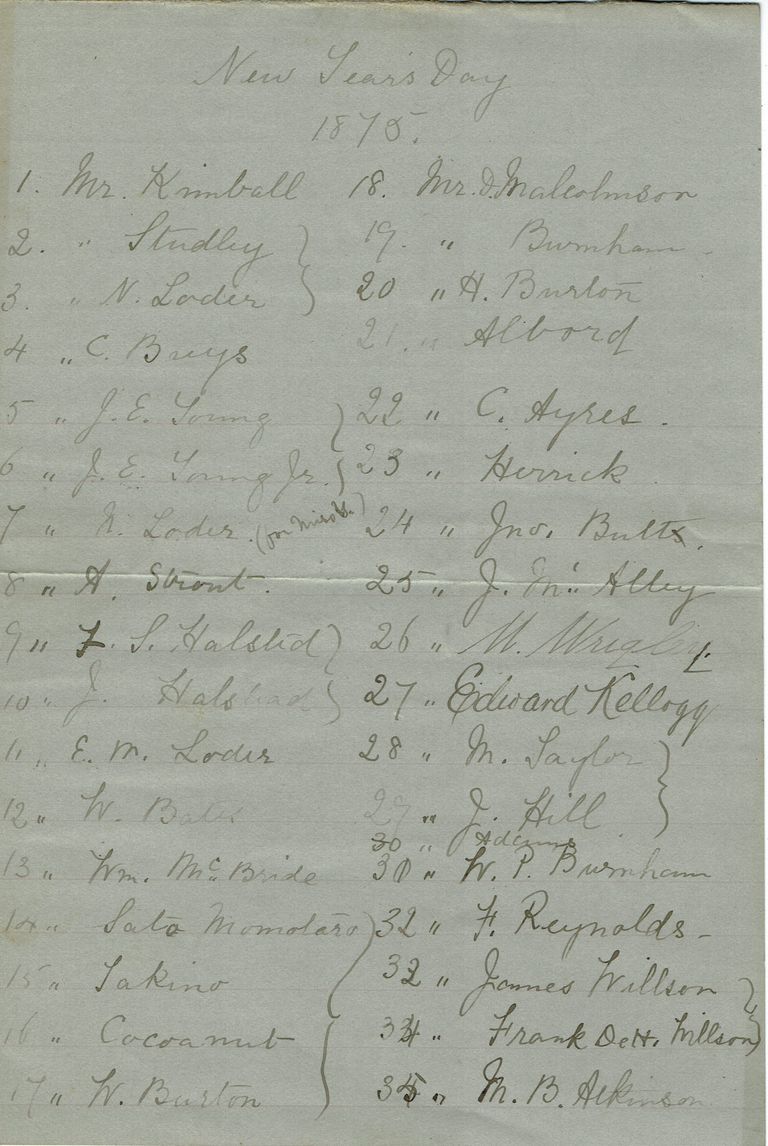 New Year's Day
1875.
1. Mr. Kimball
2. " Studley
3. " N. Loder
4 " C. Buys
5 " J. E. Young
6 " J. E. Young Jr.
7 " N. Loder. (for
8 " A. Strout.
9 " F. S. Halsted
10 " J. Halstead
11 " E. M. Loder
12 " W. Bates
13 " Wm. Mc Bride
14 " Sato Momotaro
15 " Takino
16 " Cocoanut
17 " W. Burton
18. Mr. D. Malcolmson
19. " Burnham
20 " H. Burton
21. " Albord
22 " C. Ayres.
23 " Herrick
24 " Jno. Butts.
25 " J. Mc Alley
26 " M. Wrigley.
27 " Edward Kellogg
28 " M. Taylor
29 " J. Hill
30 " Adams
30 " W. P. Burnham
32 " F. Reynolds
32 " James Willson
34 " Frank DeH. Willson
35 " M. B. Atkinson